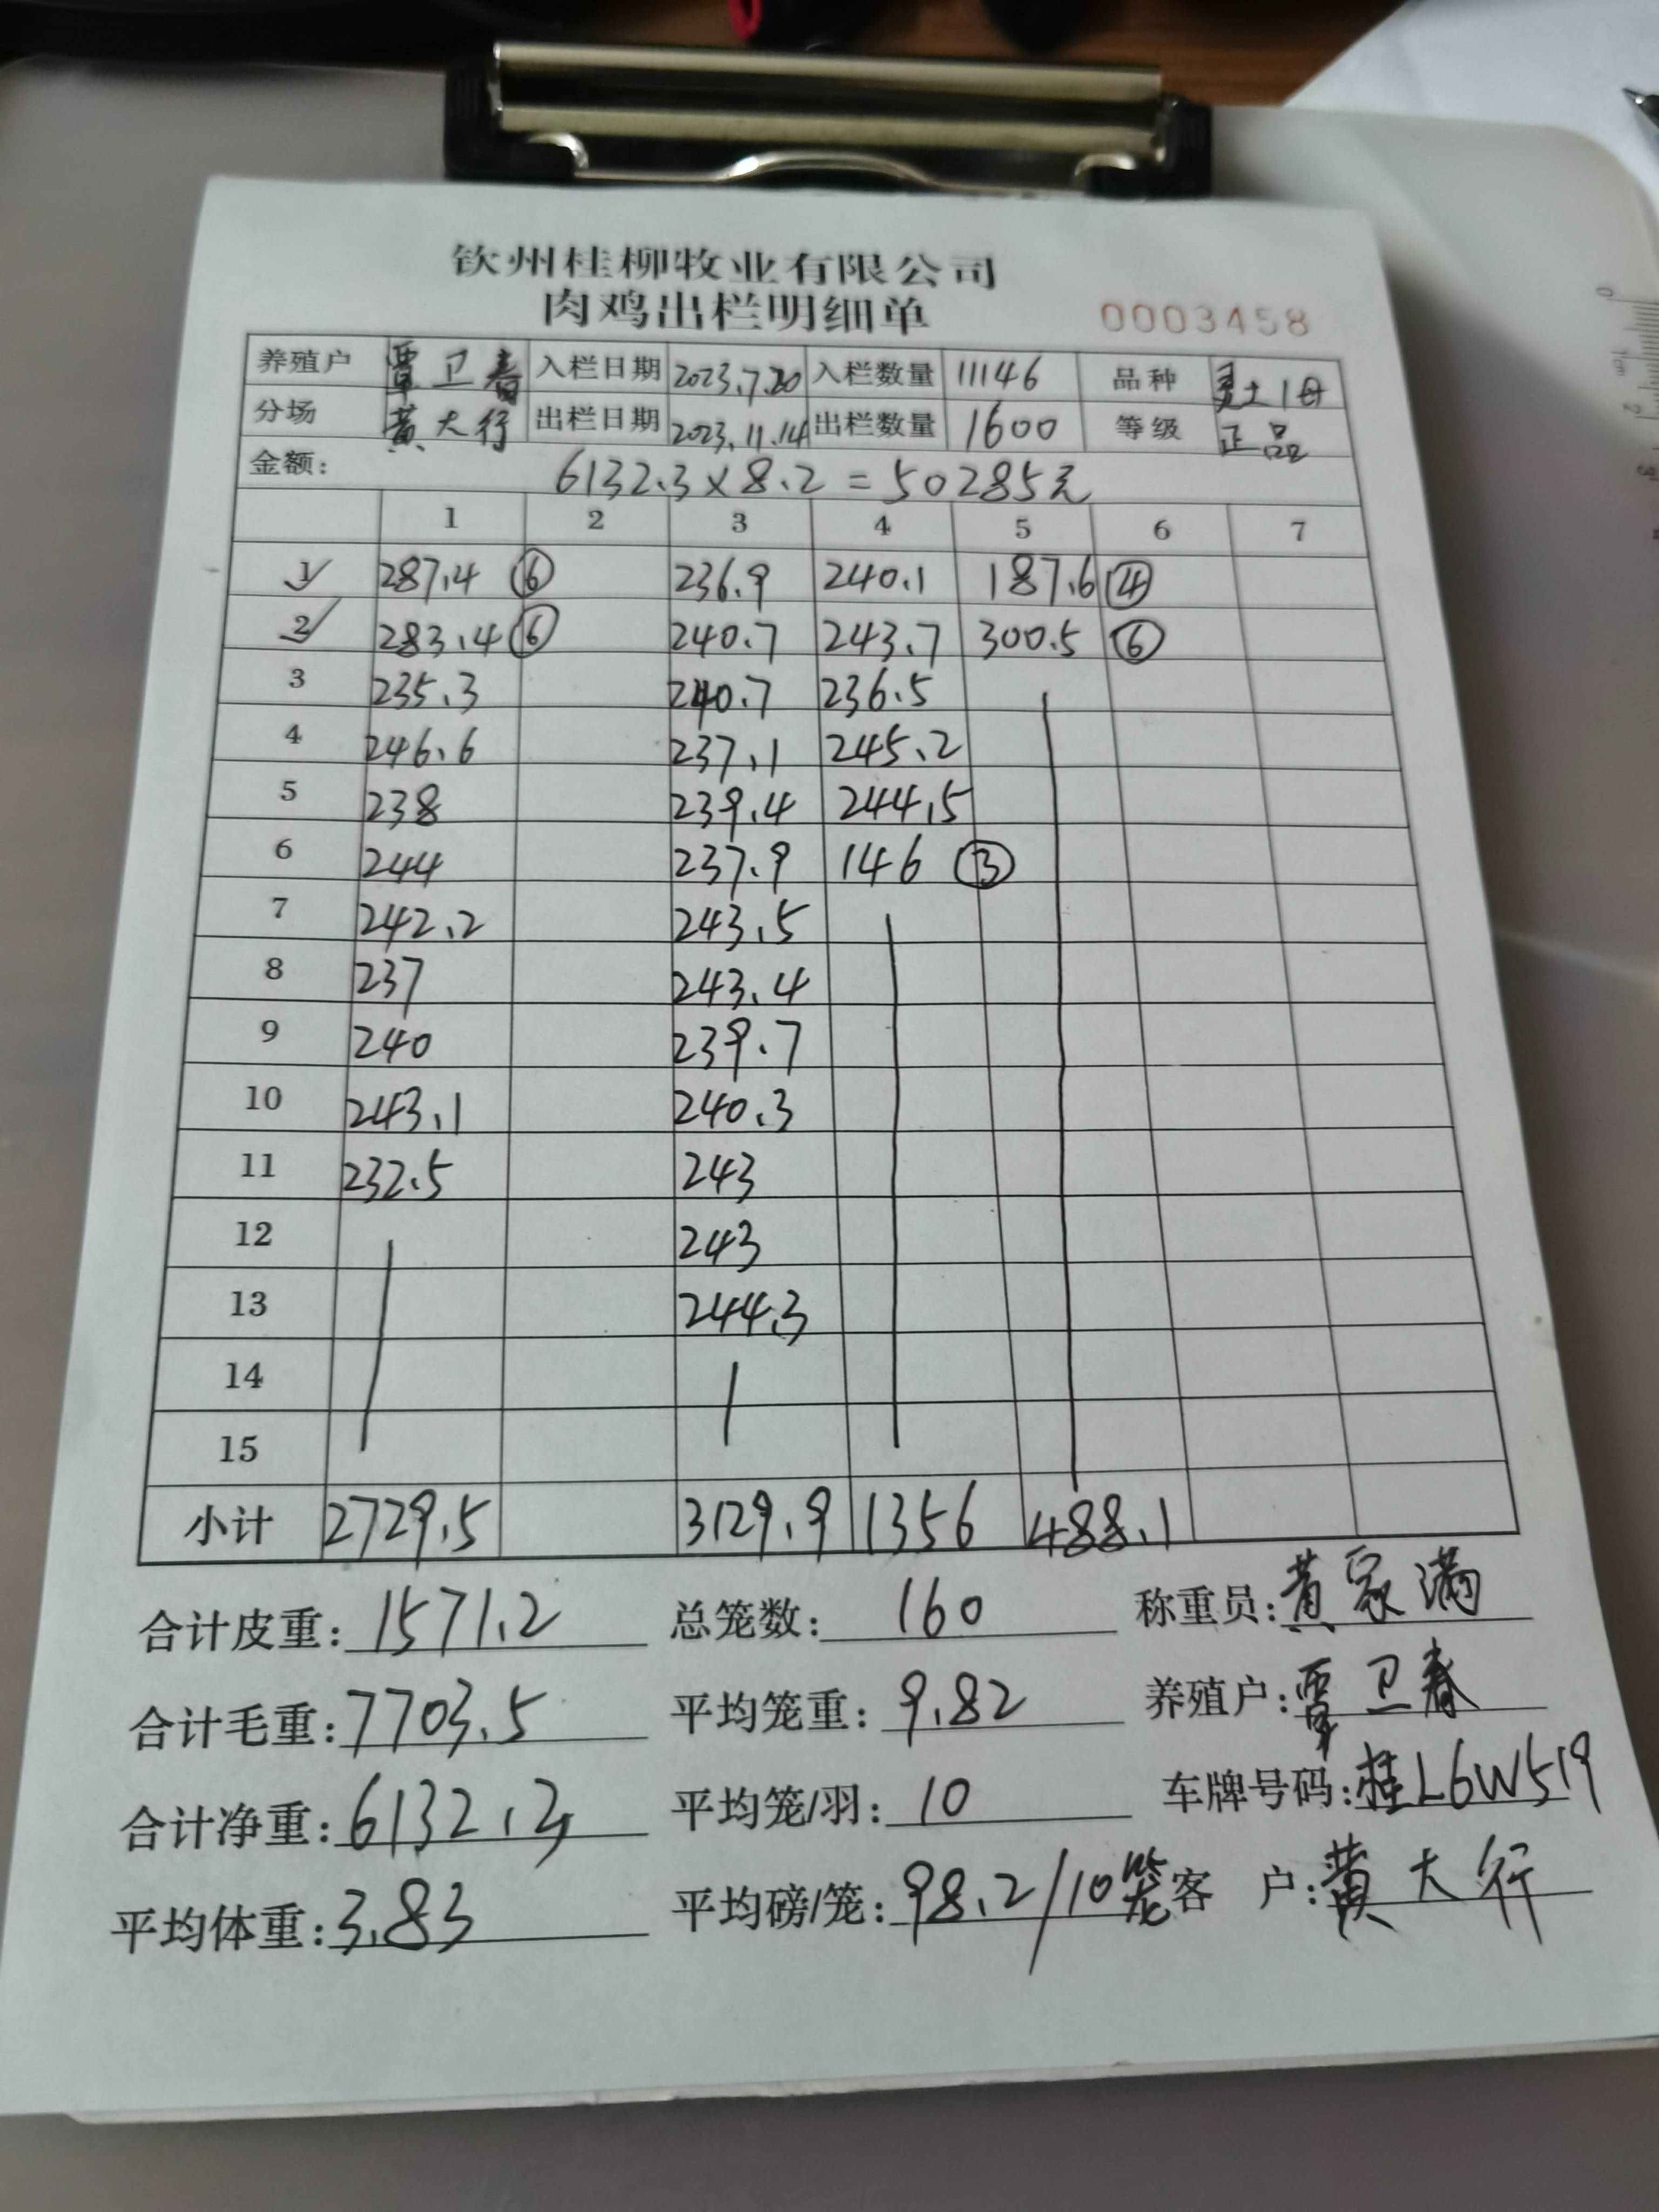 钦州桂柳牧业有限公司
肉鸡出栏明细单 0003458
养殖户 覃卫春 入栏日期 2023.7.20 入栏数量 11146 品种 土1母
分场 黄大行 出栏日期 2023.11.14 出栏数量 1600 等级 正品
金额: 6132.3×8.2=50285元
1 2 3 4 5 6 7
1 287.4 ⑥ 236.9 240.1 187.6 ④
2 283.4 ⑥ 240.7 243.7 300.5 ⑥
3 235.3 240.7 236.5
4 246.6 237.1 245.2
5 238 239.4 244.5
6 244 237.9 146 ③
7 242.2 243.5
8 237 243.4
9 240 239.7
10 243.1 240.3
11 232.5 243
12 243
13 244.3
14
15
小计 2729.5 3129.9 1356 488.1
合计皮重: 1571.2 总笼数: 160 称重员: 黄家满
合计毛重: 7703.5 平均笼重: 9.82 养殖户: 覃卫春
合计净重: 6132.3 平均笼/羽: 10 车牌号码: 桂L6W519
平均体重: 3.83 平均磅/笼: 98.2/10笼 客户: 黄大行